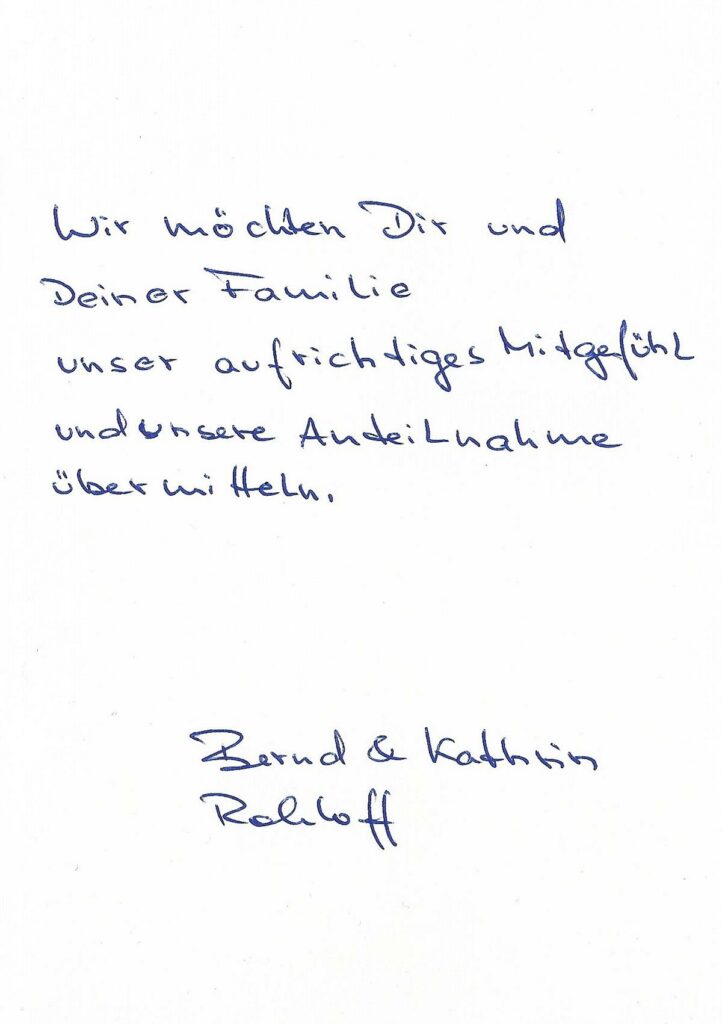 Wir möchten Dir und
Deiner Familie
unser aufrichtiges Mitgefühl
und unsere Anteilnahme
übermitteln.
Bernd & Kathrin
Rohloff